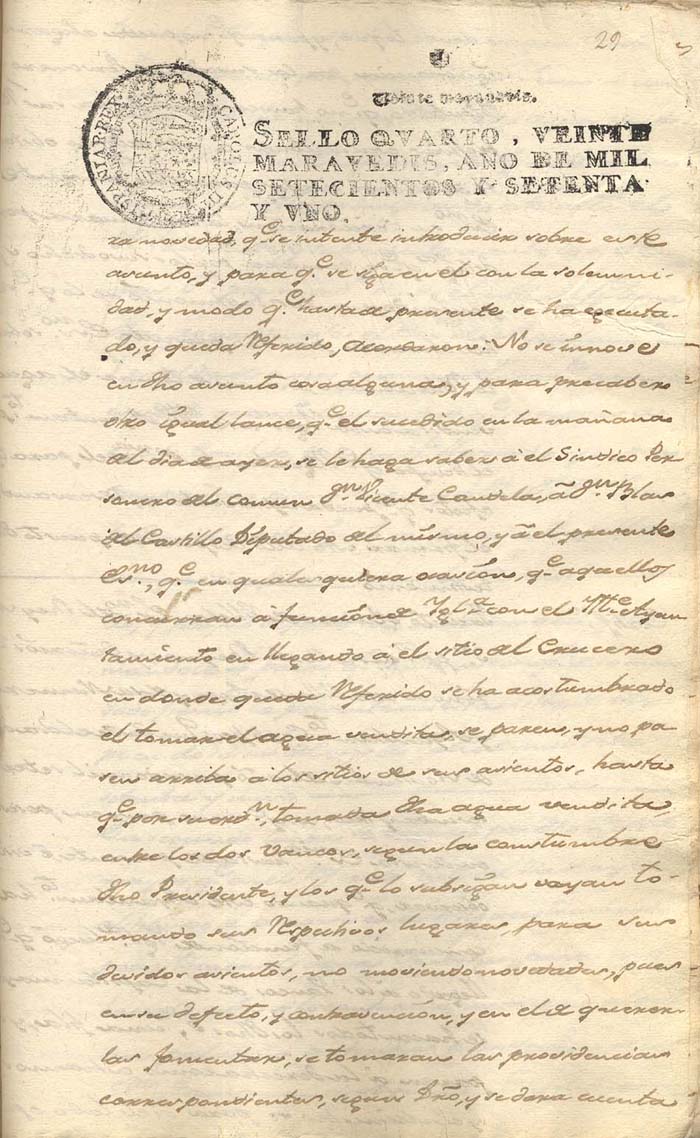 29
Veinte maravedis.
CAROLUS III D G HISPANIAR REX
SELLO QVARTO, VEINTE
MARAVEDIS, AÑO DE MIL
SETECIENTOS Y SETENTA
Y VNO.
ra novedad, qe. se intente introducir sobre este
asunto, y para qe. se siga en el con la solemni-
dad, y modo qe. hasta de presente se ha egecuta-
do, y queda referido, acordaron: No se innove
en dho asunto cosa alguna, y para precaber
otro igual lance, qe. el sucedido en la mañana
del dia de ayer, se le haga saber à el Sindico Per
sonero del comun Dn. Vicente Candela, à Dn. Blas
del Castillo Diputado del mismo, y à el presente
Esno., qe. en qualesquiera ocasion, qe. aquellos
concurran à funcion de Ygla. con el Ille. Ayun
tamiento en llegando à el sitio del Crucero
en donde queda referido se ha acostumbrado
el tomar el agua vendita, se paren, y no pa
sen arriba à los sitios de sus asientos, hasta
qe. por su ordn., tomada dha agua vendita,
entre los dos vancos, segun la costumbre
dho Presidente, y los qe. lo subsigan vayan to-
mando sus respectivos lugares, para sus
devidos asientos, no moviendo novedades, pues
en su defecto, y contravencion, y en el de querer-
las fomentar, se tomaran las providencias
correspondientes, segun dro, y se dara cuenta